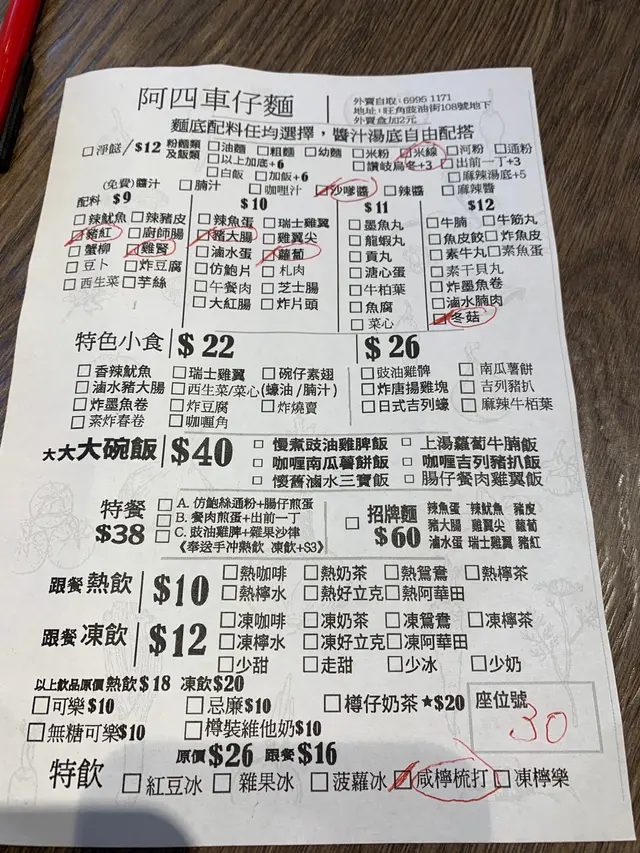 阿四車仔麵
外賣自取:6995 1171
地址:旺角豉油街108號地下
外賣盒加2元
麵底配料任均選擇,醬汁湯底自由配搭
□淨餸/$12 粉麵類及飯類 □油麵 □粗麵 □幼麵 □米粉 □米線 □河粉 □通粉
□以上加底+6 □讚岐烏冬+3 □出前一丁+3
□白飯 □加飯+6 □麻辣湯底+5
(免費)醬汁 □腩汁 □咖喱汁 □沙嗲醬 □辣醬 □麻辣醬
配料 $9
□辣魷魚 □辣豬皮
□豬紅 □廚師腸
□蟹柳 □雞腎
□豆卜 □炸豆腐
□西生菜 □芋絲
$10
□辣魚蛋 □瑞士雞翼
□豬大腸 □雞翼尖
□滷水蛋 □蘿蔔
□仿鮑片 □札肉
□午餐肉 □芝士腸
□大紅腸 □炸片頭
$11
□墨魚丸
□龍蝦丸
□貢丸
□溏心蛋
□牛柏葉
□魚腐
□菜心
$12
□牛腩 □牛筋丸
□魚皮餃 □炸魚皮
□素牛丸 □素魚蛋
□素干貝丸
□炸墨魚卷
□滷水腩肉
□冬菇
特色小食 $22
□香辣魷魚 □瑞士雞翼 □碗仔素翅
□滷水豬大腸 □西生菜/菜心(蠔油/腩汁)
□炸墨魚卷 □炸豆腐 □炸燒賣
□素炸春卷 □咖喱角
$26
□豉油雞髀 □南瓜薯餅
□炸唐揚雞塊 □吉列豬扒
□日式吉列蠔 □麻辣牛栢葉
大大大碗飯 $40
□ 慢煮豉油雞脾飯 □ 上湯蘿蔔牛腩飯
□ 咖喱南瓜薯餅飯 □ 咖喱吉列豬扒飯
□ 懷舊滷水三寶飯 □ 腸仔餐肉雞翼飯
特餐 $38
□ A. 仿鮑絲通粉+腸仔煎蛋
□ B. 餐肉煎蛋+出前一丁
□ C. 豉油雞脾+雜果沙律
《奉送手冲熱飲 凍飲+$3》
□ 招牌麵 $60
辣魚蛋 辣魷魚 豬皮
豬大腸 雞翼尖 蘿蔔
滷水蛋 瑞士雞翼 豬紅
跟餐熱飲 $10
□熱咖啡 □熱奶茶 □熱鴛鴦 □熱檸茶
□熱檸水 □熱好立克 □熱阿華田
跟餐凍飲 $12
□凍咖啡 □凍奶茶 □凍鴛鴦 □凍檸茶
□凍檸水 □凍好立克 □凍阿華田
□少甜 □走甜 □少冰 □少奶
以上飲品原價熱飲$18 凍飲$20
□可樂$10 □忌廉$10 □樽仔奶茶★$20
□無糖可樂$10 □樽裝維他奶$10
座位號
30
特飲 原價$26 跟餐$16
□紅豆冰 □雜果冰 □菠蘿冰 □咸檸梳打 □凍檸樂